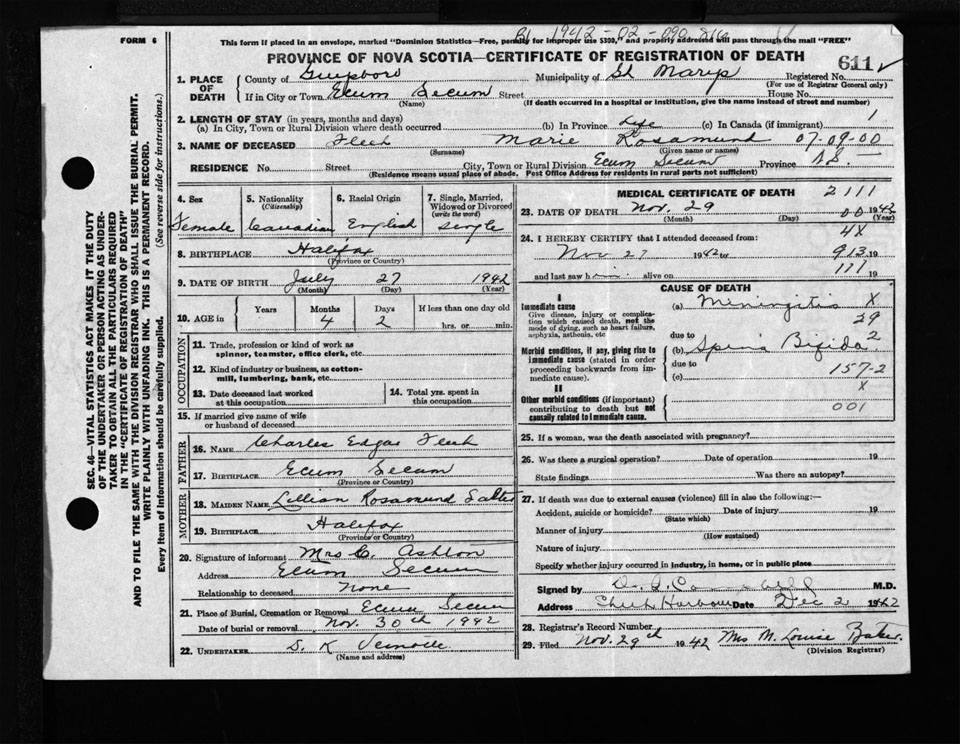 1942-02-090216
FORM 6
This form if placed in an envelope, marked "Dominion Statistics—Free, penalty for improper use $300," and properly addressed will pass through the mail "FREE"
PROVINCE OF NOVA SCOTIA—CERTIFICATE OF REGISTRATION OF DEATH
611
1. PLACE OF DEATH
County of Guysboro Municipality of St Marys Registered No.
(For use of Registrar General only)
If in City or Town Ecum Secum Street House No.
(Name) (If death occurred in a hospital or institution, give the name instead of street and number)
2. LENGTH OF STAY (in years, months and days)
(a) In City, Town or Rural Division where death occurred (b) In Province Life (c) In Canada (if immigrant) 1
3. NAME OF DECEASED Fleet Marie Rosamund 07-09-00
(Surname) (Given name or names)
RESIDENCE No. Street City, Town or Rural Division Ecum Secum Province N.S.
(Residence means usual place of abode. Post Office Address for residents in rural parts not sufficient)
4. Sex
Female
5. Nationality
(Citizenship)
Canadian
6. Racial Origin
English
7. Single, Married, Widowed or Divorced
(write the word)
Single
8. BIRTHPLACE Halifax
(Province or Country)
9. DATE OF BIRTH July 27 1942
(Month) (Day) (Year)
10. AGE in
Years Months Days If less than one day old
4 2 hrs. or min.
OCCUPATION
11. Trade, profession or kind of work as spinner, teamster, office clerk, etc.
12. Kind of industry or business, as cotton-mill, lumbering, bank, etc.
13. Date deceased last worked at this occupation
14. Total yrs. spent in this occupation
15. If married give name of wife or husband of deceased
FATHER
16. NAME Charles Edgar Fleet
17. BIRTHPLACE Ecum Secum
(Province or Country)
MOTHER
18. MAIDEN NAME Lillian Rosamund
19. BIRTHPLACE Halifax
(Province or Country)
20. Signature of informant Mrs C. Ashton
Address Ecum Secum
Relationship to deceased None
21. Place of Burial, Cremation or Removal Ecum Secum
Date of burial or removal Nov. 30th 1942
22. UNDERTAKER S. K
(Name and address)
MEDICAL CERTIFICATE OF DEATH 2111
23. DATE OF DEATH Nov. 29 00 1942
(Month) (Day) (Year)
4X
24. I HEREBY CERTIFY that I attended deceased from:
Nov 27 1942 to 913 19
and last saw h alive on 111 19
CAUSE OF DEATH
I
Immediate cause
Give disease, injury or complication which caused death, not the mode of dying, such as heart failure, asphyxia, asthenia, etc
(a) Meningitis X
29
due to
Morbid conditions, if any, giving rise to immediate cause (stated in order proceeding backwards from immediate cause).
(b) Spina Bifida 2
due to
(c) 157-2
X
II
Other morbid conditions (if important) contributing to death but not causally related to immediate cause.
001
25. If a woman, was the death associated with pregnancy?
26. Was there a surgical operation? Date of operation 19
State findings Was there an autopsy?
27. If death was due to external causes (violence) fill in also the following:—
Accident, suicide or homicide? Date of injury 19
(State which)
Manner of injury
(How sustained)
Nature of injury
Specify whether injury occurred in industry, in home, or in public place
Signed by M.D.
Address Sheet Harbour Date Dec 2 1942
28. Registrar's Record Number
29. Filed Nov. 29th 1942 Mrs M. Louise Baker.
(Division Registrar)
SEC. 46—VITAL STATISTICS ACT MAKES IT THE DUTY
OF THE UNDERTAKER OR PERSON ACTING AS UNDER-
TAKER TO OBTAIN ALL THE PARTICULARS REQUIRED
IN THE "CERTIFICATE OF REGISTRATION OF DEATH"
AND TO FILE THE SAME WITH THE DIVISION REGISTRAR WHO SHALL ISSUE THE BURIAL PERMIT.
WRITE PLAINLY WITH UNFADING INK. THIS IS A PERMANENT RECORD.
Every item of Information should be carefully supplied. (See reverse side for instructions.)